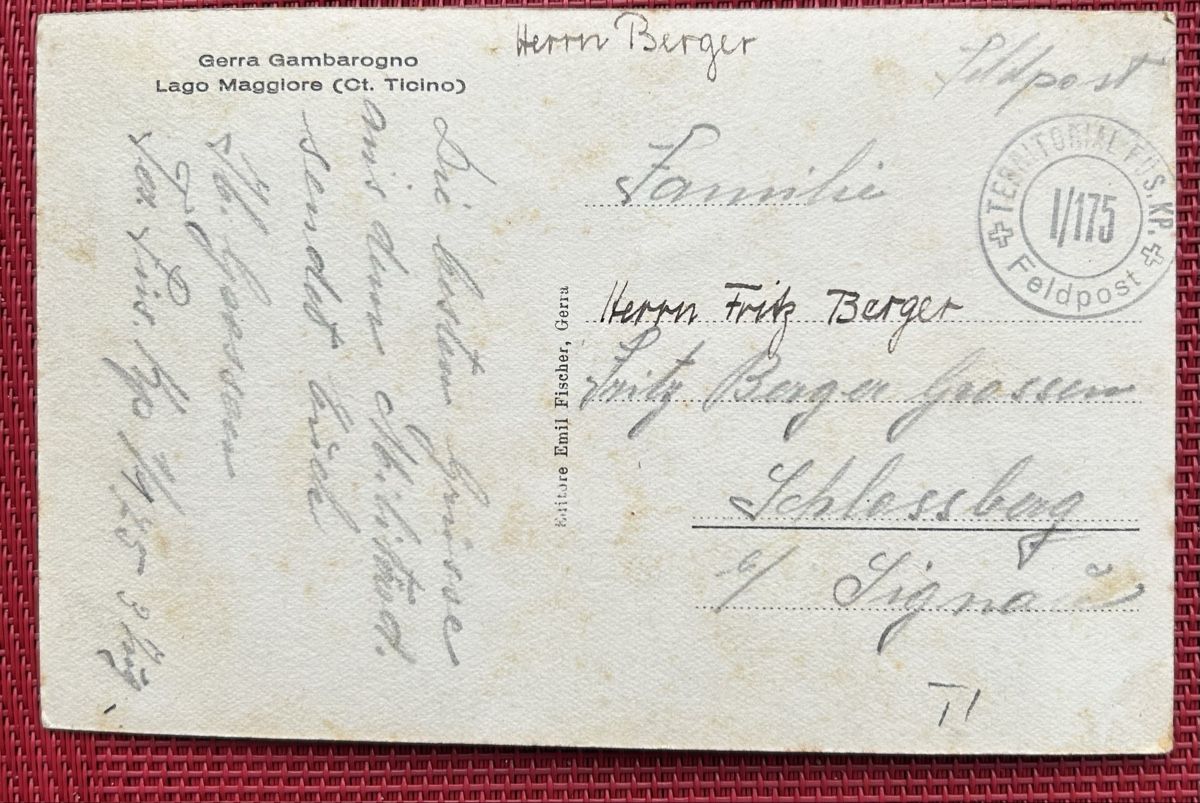 Gerra Gambarogno
Lago Maggiore (Ct. Ticino)
Herrn Berger
Feldpost
TERRITORIAL FÜS. KP.
I/175
Feldpost
Die besten Grüsse
aus dem Militärd.
sendet Euch
Ter. Füs. Kp
Editore Emil Fischer, Gerra
Familie
Herrn Fritz Berger
Fritz Berger Grossen
Schlossberg
b/ Signau
TI